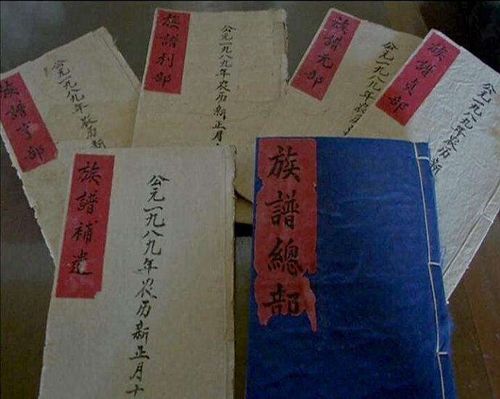 族譜亨部
公元一九八九年农历
族譜利部
公元一九八九年农历新正月
族譜元部
公元一九八九年
族譜貞部
公元一九八九年农历新
族譜補遺
公元一九八九年农历新正月十
族譜總部